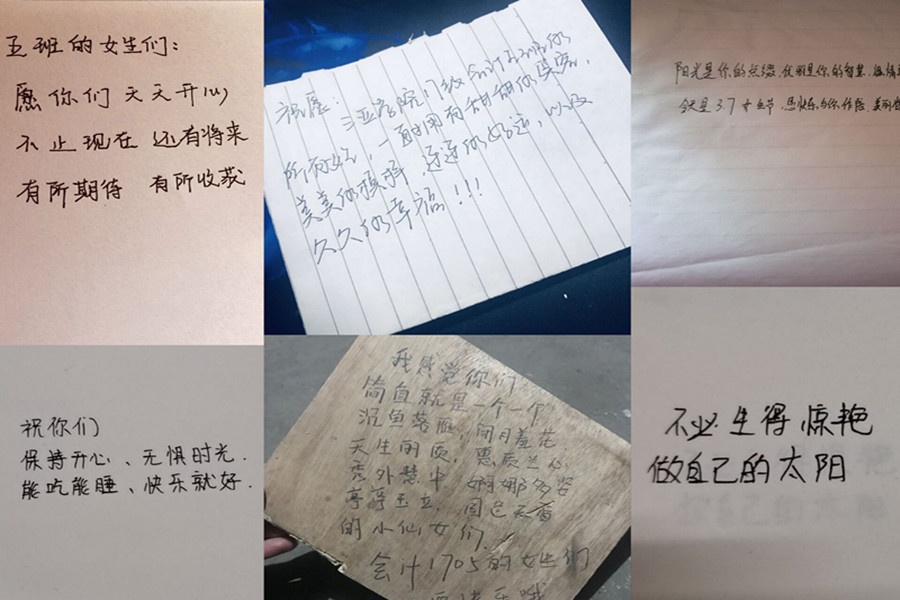 五班的女生们：
愿你们天天开心
不止现在 还有将来
有所期待 有所收获
祝愿：三亚学院17级会计五班的
所有女生，一直拥有甜甜的笑容，
美美的模样，连连的好运，以及
久久的幸福！！！
阳光是你的点缀，优雅是你的智慧，
今天是3.7女生节，愿快乐与你作陪，美丽
祝你们
保持开心、无惧时光.
能吃能睡、快乐就好.
我感觉你们
简直就是一个一个
沉鱼落雁，闭月羞花
天生丽质，惠质兰心
秀外慧中，婀娜多姿
亭亭玉立，国色天香
的小仙女们.
会计1705的女生们
快乐哦
不必生得惊艳
做自己的太阳